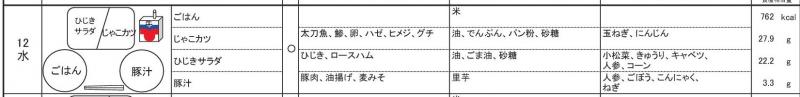 12
水
ひじき
サラダ
じゃこカツ
ごはん
豚汁
ごはん 米 762 kcal
じゃこカツ ○ 太刀魚、鯵、卵、ハゼ、ヒメジ、グチ 油、でんぷん、パン粉、砂糖 玉ねぎ、にんじん 27.9 g
ひじきサラダ ひじき、ロースハム 油、ごま油、砂糖 小松菜、きゅうり、キャベツ、
人参、コーン 22.2 g
豚汁 豚肉、油揚げ、麦みそ 里芋 人参、ごぼう、こんにゃく、
ねぎ 3.3 g